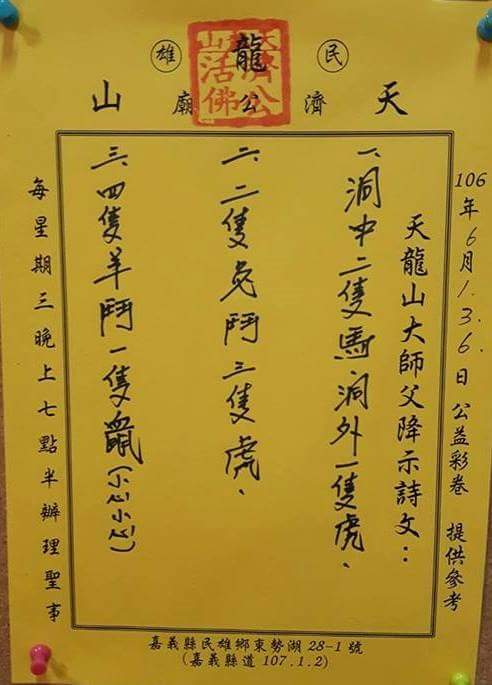 民雄
天龍山
濟公廟
天濟公山活佛
106年6月1.3.6.日 公益彩卷 提供參考
天龍山大師父降示詩文：
一、洞中二隻馬、洞外一隻虎、
二、二隻兔鬥三隻虎、
三、四隻羊鬥一隻鼠(小心小心)
每星期三晚上七點半辦理聖事
嘉義縣民雄鄉東勢湖28-1號
(嘉義縣道107.1.2)